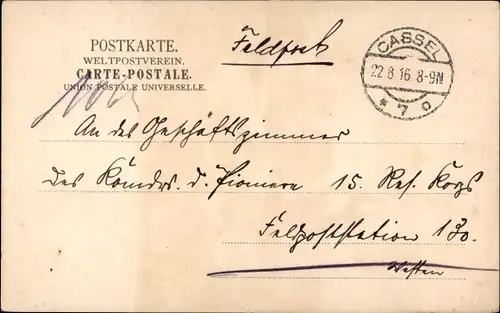 POSTKARTE.
WELTPOSTVEREIN.
CARTE-POSTALE.
UNION POSTALE UNIVERSELLE.
Feldpost
CASSEL
22.8.16.8-9N
* 7 o
An das Geschäftszimmer
des Komdrs. d. Pioniere 15. Res. Korps
Feldpoststation 130.
Westen